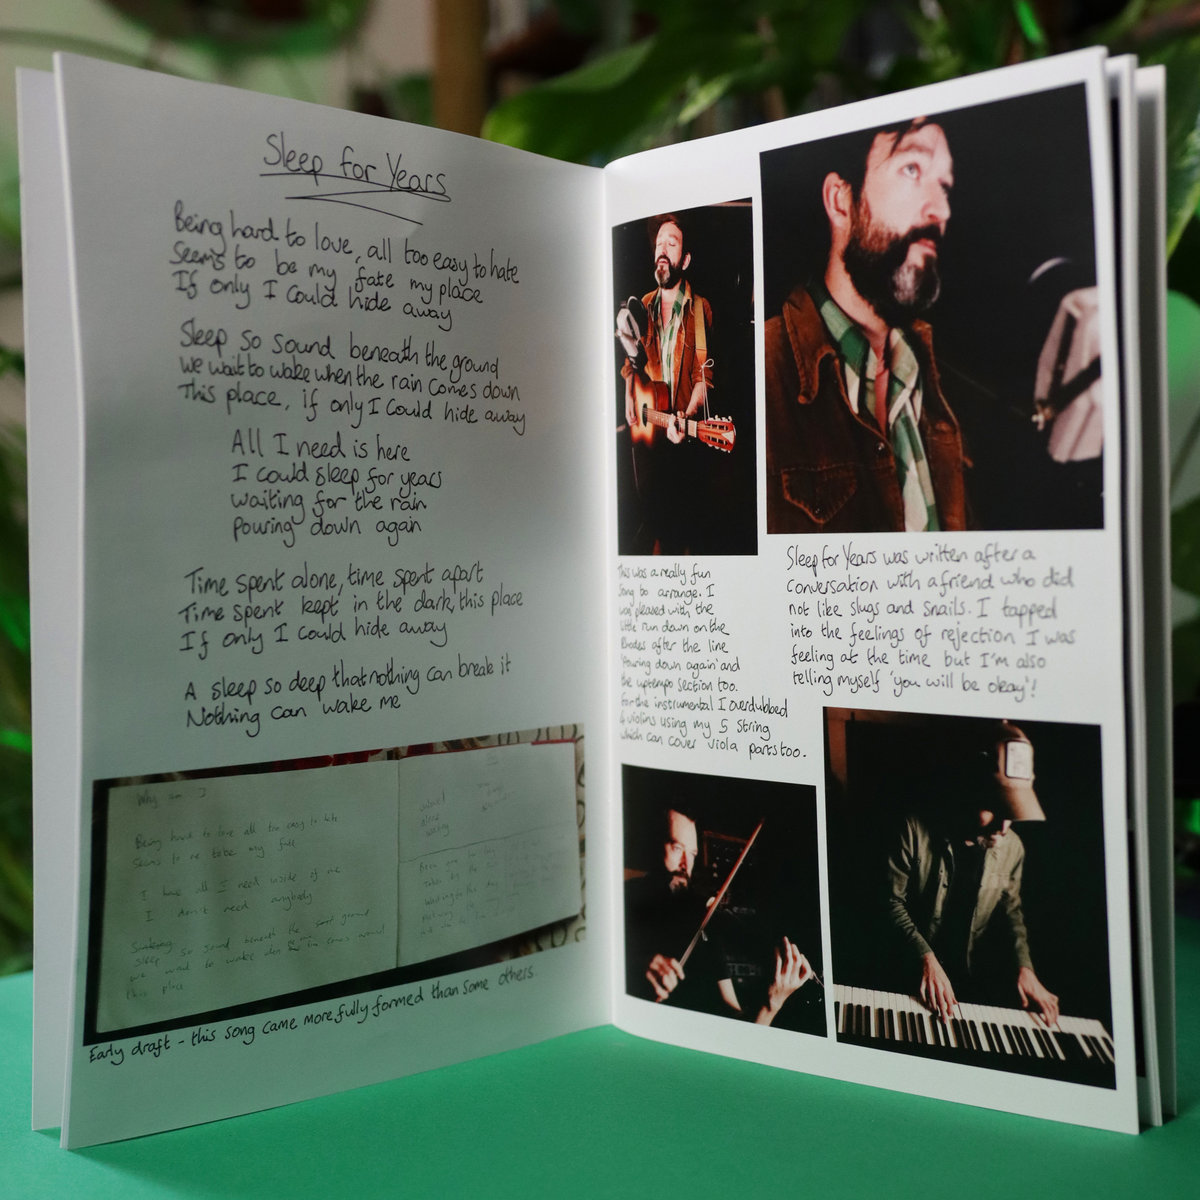 Sleep for Years
Being hard to love, all too easy to hate
Seems to be my fate my place
If only I could hide away
Sleep so sound beneath the ground
We wait to wake when the rain comes down
This place, if only I could hide away
All I need is here
I could sleep for years
waiting for the rain
pouring down again
Time spent alone, time spent apart
Time spent kept in the dark, this place
If only I could hide away
A sleep so deep that nothing can break it
Nothing can wake me
Why am I
Being hard to love all too easy to hate
Seems to me to be my fate
I have all I need inside of me
I don't need anybody
Sleep so sound beneath the ground
we wait to wake when rain comes around
this place
Early draft - this song came more fully formed than some others.
This was a really fun
song to arrange. I
was pleased with the
little run down on the
Rhodes after the line
'Pouring down again' and
the uptempo section too.
For the instrumental I overdubbed
4 violins using my 5 string
which can cover viola parts too.
Sleep for Years was written after a
conversation with a friend who did
not like slugs and snails. I tapped
into the feelings of rejection I was
feeling at the time but I'm also
telling myself 'you will be okay'!